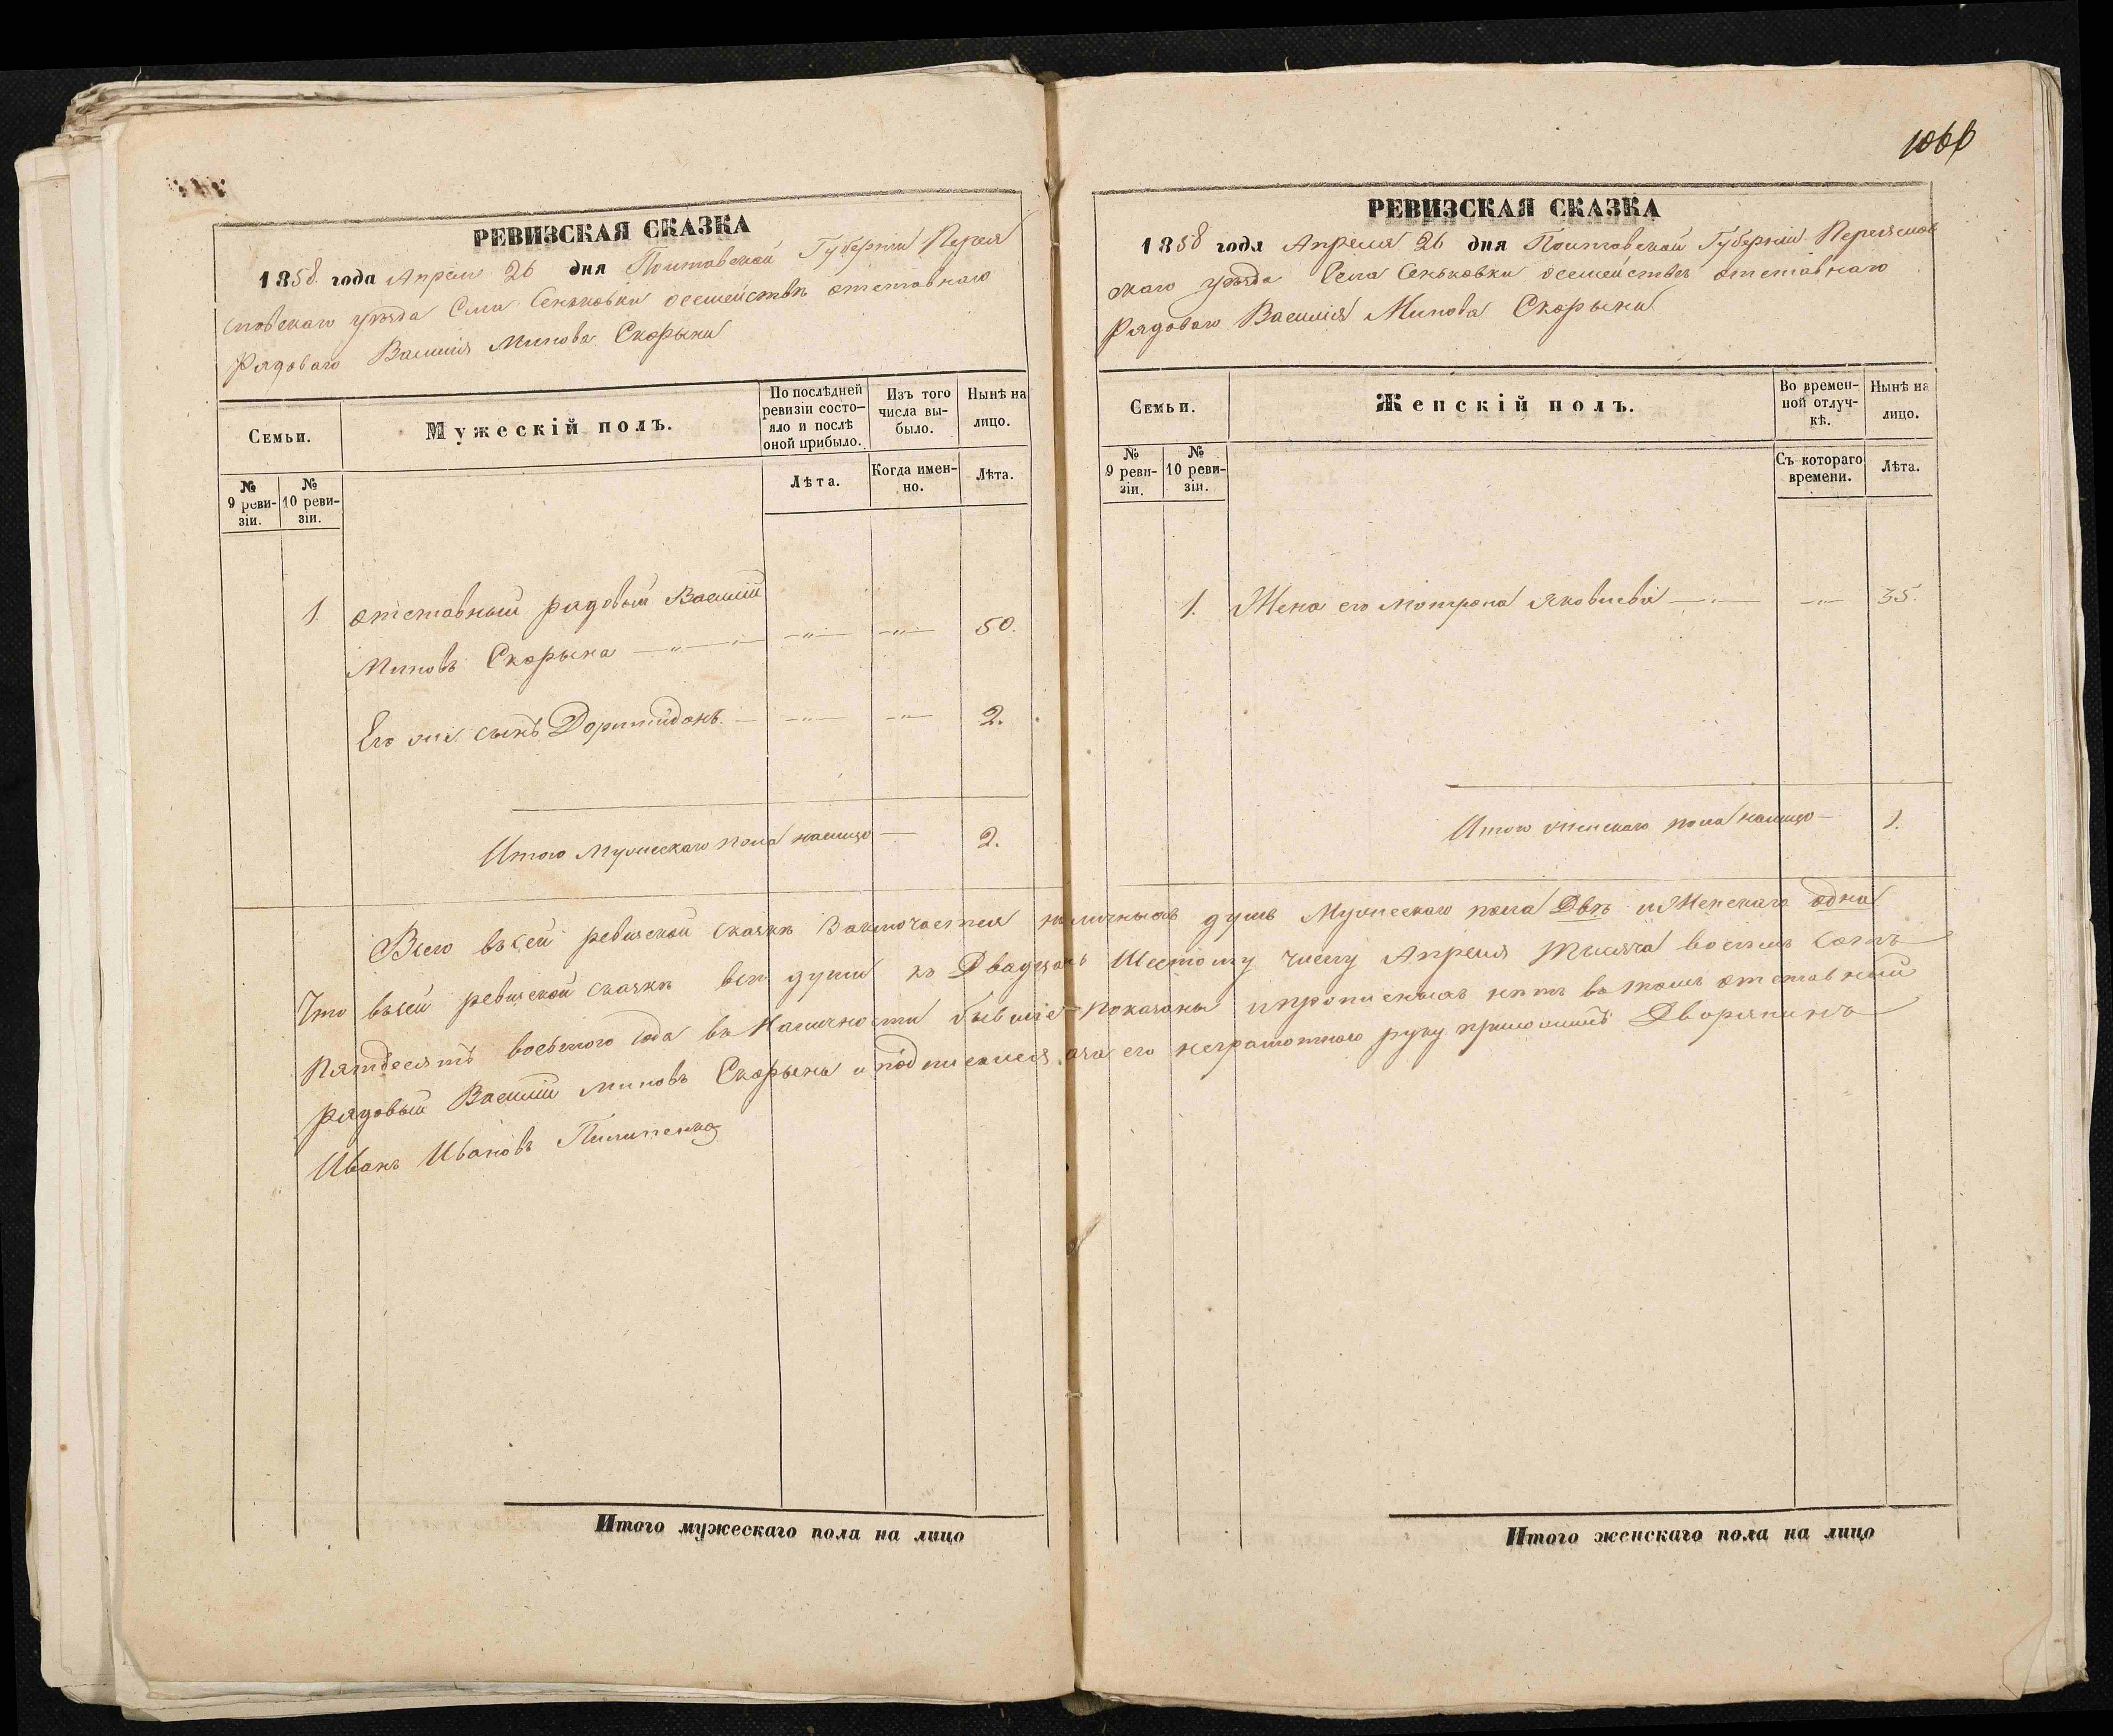 1066
РЕВИЗСКАЯ СКАЗКА
1858 года Апреля 26 дня Полтавской Губерніи Перея
словскаго уезда Села Сеньковки осемействѣ отставнаго
Рядоваго Василія Минова Скорыни
Семьи.
Мужескій полъ.
По послѣдней ревизіи состо-яло и послѣ оной прибыло.
Изъ того числа вы-было.
Нынѣ на лицо.
№ 9 реви-зіи.
№ 10 реви-зіи.
Лѣта.
Когда имен-но.
Лѣта.
1. отставный рядовый Василій
Миновъ Скорына 50.
Его сынъ Дормидонъ 2.
Итого Мужескаго пола налицо 2.
РЕВИЗСКАЯ СКАЗКА
1858 года Апреля 26 дня Полтавской Губерніи Переяслов
скаго уезда Села Сеньковки осемействѣ отставнаго
Рядоваго Василія Минова Скорыни
Семьи.
Женскій полъ.
Во времен-ной отлуч-кѣ.
Нынѣ на лицо.
№ 9 реви-зіи.
№ 10 реви-зіи.
Съ котораго времени.
Лѣта.
1. Жена его Мотрона Яковлева 35.
Итого женскаго пола налицо 1.
Всего всей ревизской сказкѣ Заключается наличныхъ душъ Мужескаго пола Двѣ и Женскаго одна
Что всей ревизской сказкѣ всѣ души къ Двадцать Шестому числу Апреля тысяча восемь сотъ
Пятдесятъ восьмого года въ Наличности бывшіе показаны и прописныхъ нѣтъ въ томъ отставный
рядовый Василій Миновъ Скорына и подписался а за его неграмотного руку приложилъ Дворянинъ
Иванъ Ивановъ Пилипенко
Итого мужескаго пола на лицо
Итого женскаго пола на лицо